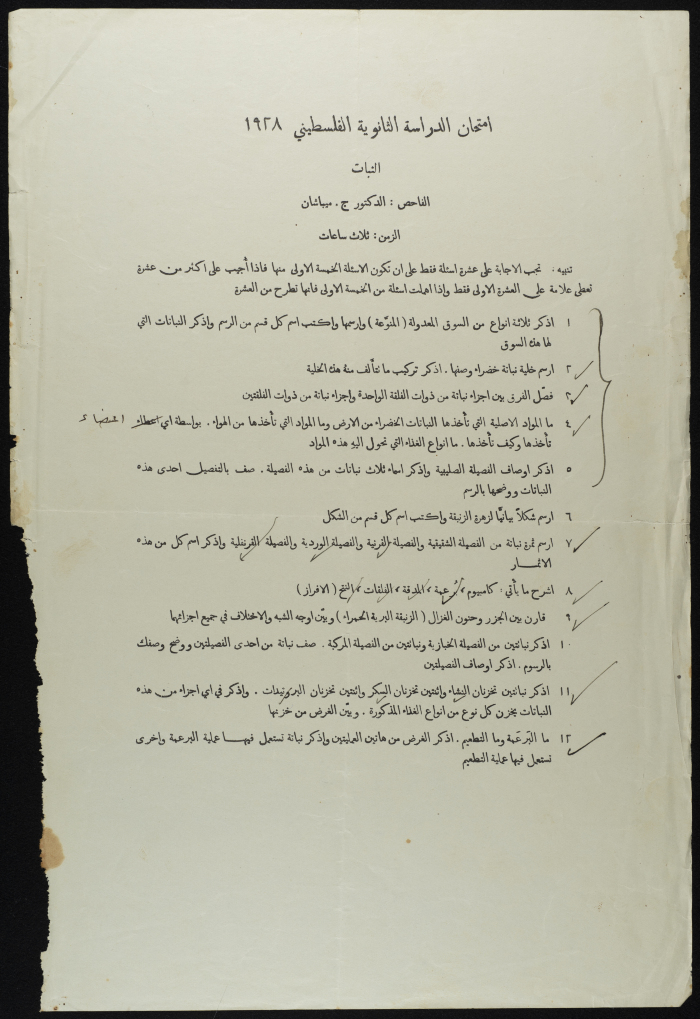 امتحان الدراسة الثانوية الفلسطيني ١٩٢٨
النبات
الفاحص : الدكتور ج . ميباشان
الزمن : ثلاث ساعات
تنبيه : تجب الاجابة على عشرة اسئلة فقط على ان تكون الاسئلة الخمسة الاولى منها فاذا أجيب على اكثر من عشرة
تعطى علامة على العشرة الاولى فقط واذا اهملت اسئلة من الخمسة الاولى فانها تطرح من العشرة
١ اذكر ثلاثة انواع من السوق المعدولة ( المنوّعة ) وارسمها واكتب اسم كل قسم من الرسم واذكر النباتات التي
لها هذه السوق
٢ ارسم خلية نباتة خضراء وصفها . اذكر تركيب ما تتألف منه هذه الخلية
٣ فصّل الفرق بين اجزاء نباتة من ذوات الفلقة الواحدة واجزاء نباتة من ذوات الفلقتين
٤ ما المواد الاصلية التي تأخذها النباتات الخضراء من الارض وما المواد التي تأخذها من الهواء . بواسطة اي اعضاء
تأخذها وكيف تأخذها . ما انواع الغذاء التي تحول اليه هذه المواد
٥ اذكر اوصاف الفصيلة الصليبية واذكر اسماء ثلاث نباتات من هذه الفصيلة . صف بالتفصيل احدى هذه
النباتات ووضحها بالرسم
٦ ارسم شكلاً بيانيًا لزهرة الزنبقة واكتب اسم كل قسم من الشكل
٧ ارسم ثمرة نباتة من الفصيلة الشقيقية والفصيلة القرنية والفصيلة الوردية والفصيلة القرنفلية واذكر اسم كل من هذه
الاثمار
٨ اشرح ما يأتي : كامبيوم ، بُرعمة ، المدقة ، الفلقات ، النتح ( الافراز )
٩ قارن بين الجزر وحنون الغزال ( الزنبقة البرية الحمراء ) وبيّن اوجه الشبه والاختلاف في جميع اجزائهما
١٠ اذكر نباتتين من الفصيلة الخبازية ونباتتين من الفصيلة المركبة . صف نباتة من احدى الفصيلتين ووضح وصفك
بالرسوم . اذكر اوصاف الفصيلتين
١١ اذكر نباتتين تخزنان النشاء واثنتين تخزنان السكر واثنتين تخزنان البروتيدات . واذكر في اي اجزاء من هذه
النباتات يخزن كل نوع من انواع الغذاء المذكورة . وبيّن الغرض من خزنها
١٢ ما البَرعَمة وما التطعيم . اذكر الغرض من هاتين العمليتين واذكر نباتة تستعمل فيها عملية البرعمة واخرى
تستعمل فيها عملية التطعيم